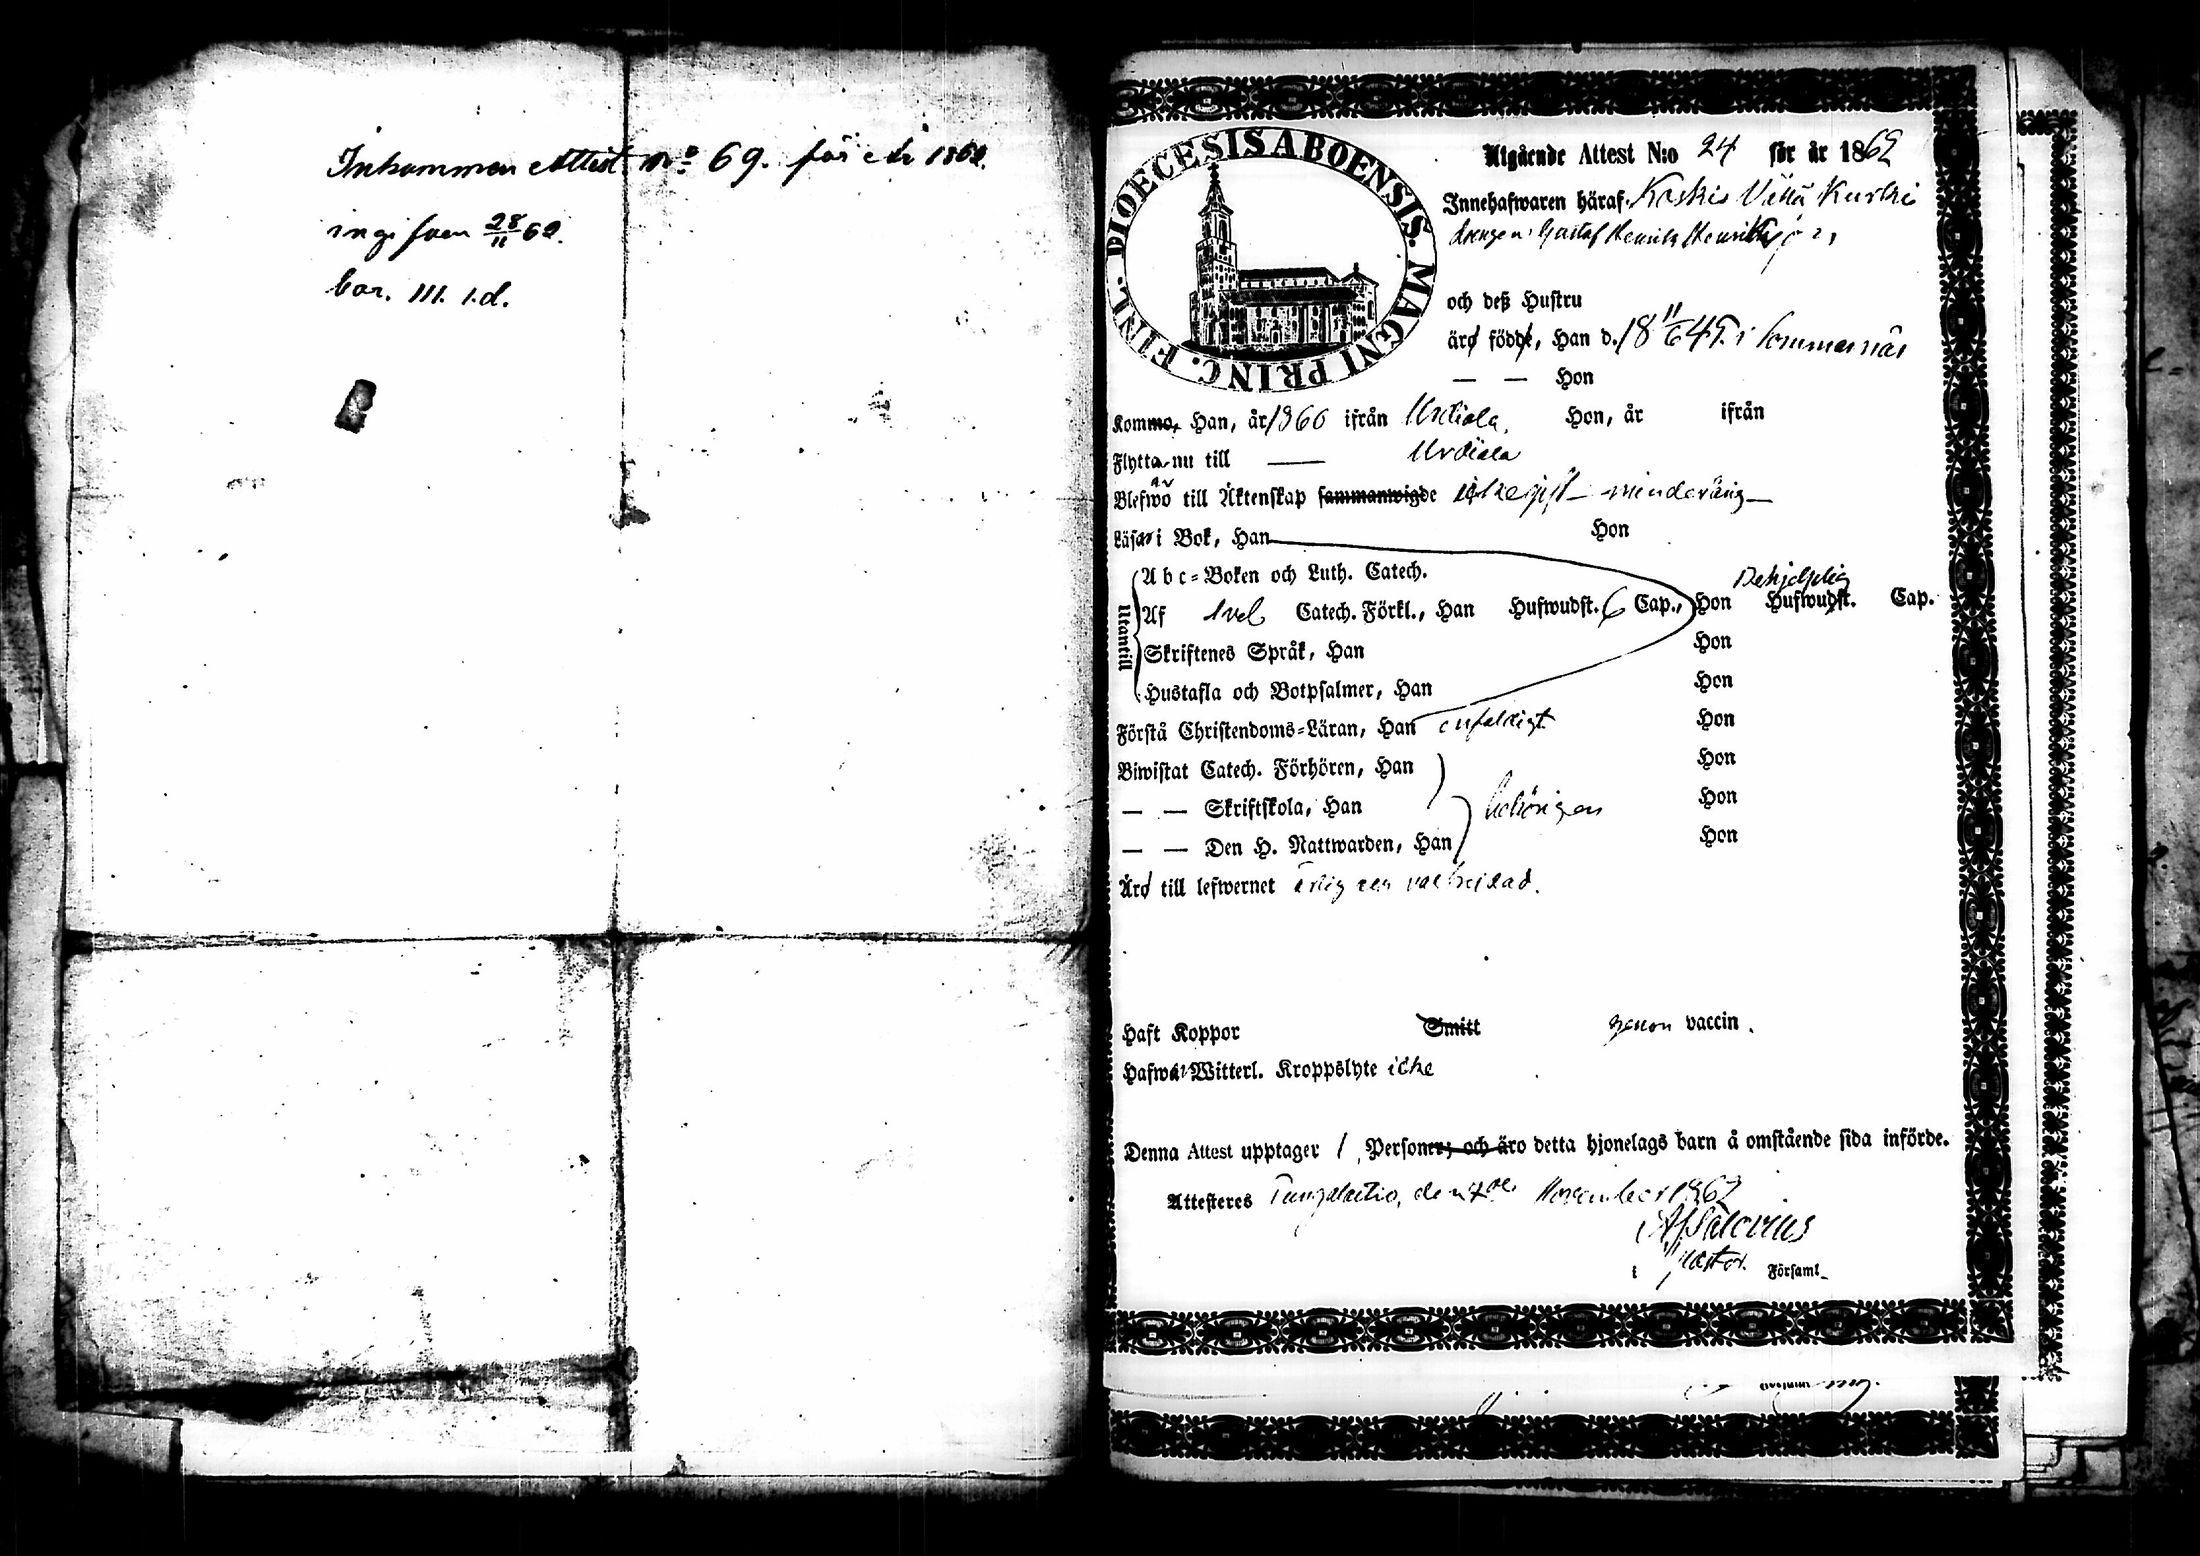 Inkommen Attest No 69. för år 1862.
ingifven 28/11 62.
bar. III. 1.d.
DIOECESIS ABOENSIS. MAGNI PRINC. FINL.
Utgående Attest N:o 24 för år 1862
Innehafwaren häraf Koskis Kurki
drengen Gustaf Henrik Henriksson
och deß Hustru
äro födde, Han d. 18 11/6 45 i Sommernäs
— — Hon
Kommo, Han, år 1860 ifrån Urdiala, Hon, år ifrån
Flytta nu till — Urdiala
Blefwo till Äktenskap sammanwigde icke gift – minderårig –
Läsa i Bok, Han Hon
Utantill
A b c-Boken och Luth. Catech.
Af Svel Catech. Förkl., Han Hufwudst. 6 Cap., Hon Hufwudst. Cap.
Skriftenes Språk, Han Hon
Hustafla och Botpsalmer, Han Hon
Förstå Christendoms-Läran, Han enfaldigt Hon
Biwistat Catech. Förhören, Han Hon
— — Skriftskola, Han behörigen Hon
— — Den H. Nattwarden, Han Hon
Äro till lefwernet ärlig och välfrejdad.
Haft Koppor Smitt genom vaccin.
Hafwa Witterl. Kroppslyte icke
Denna Attest upptager 1 Personer; och äro detta hjonelags barn å omstående sida införde.
Attesteres den 7de November 1862
Pastor.
i Församl.